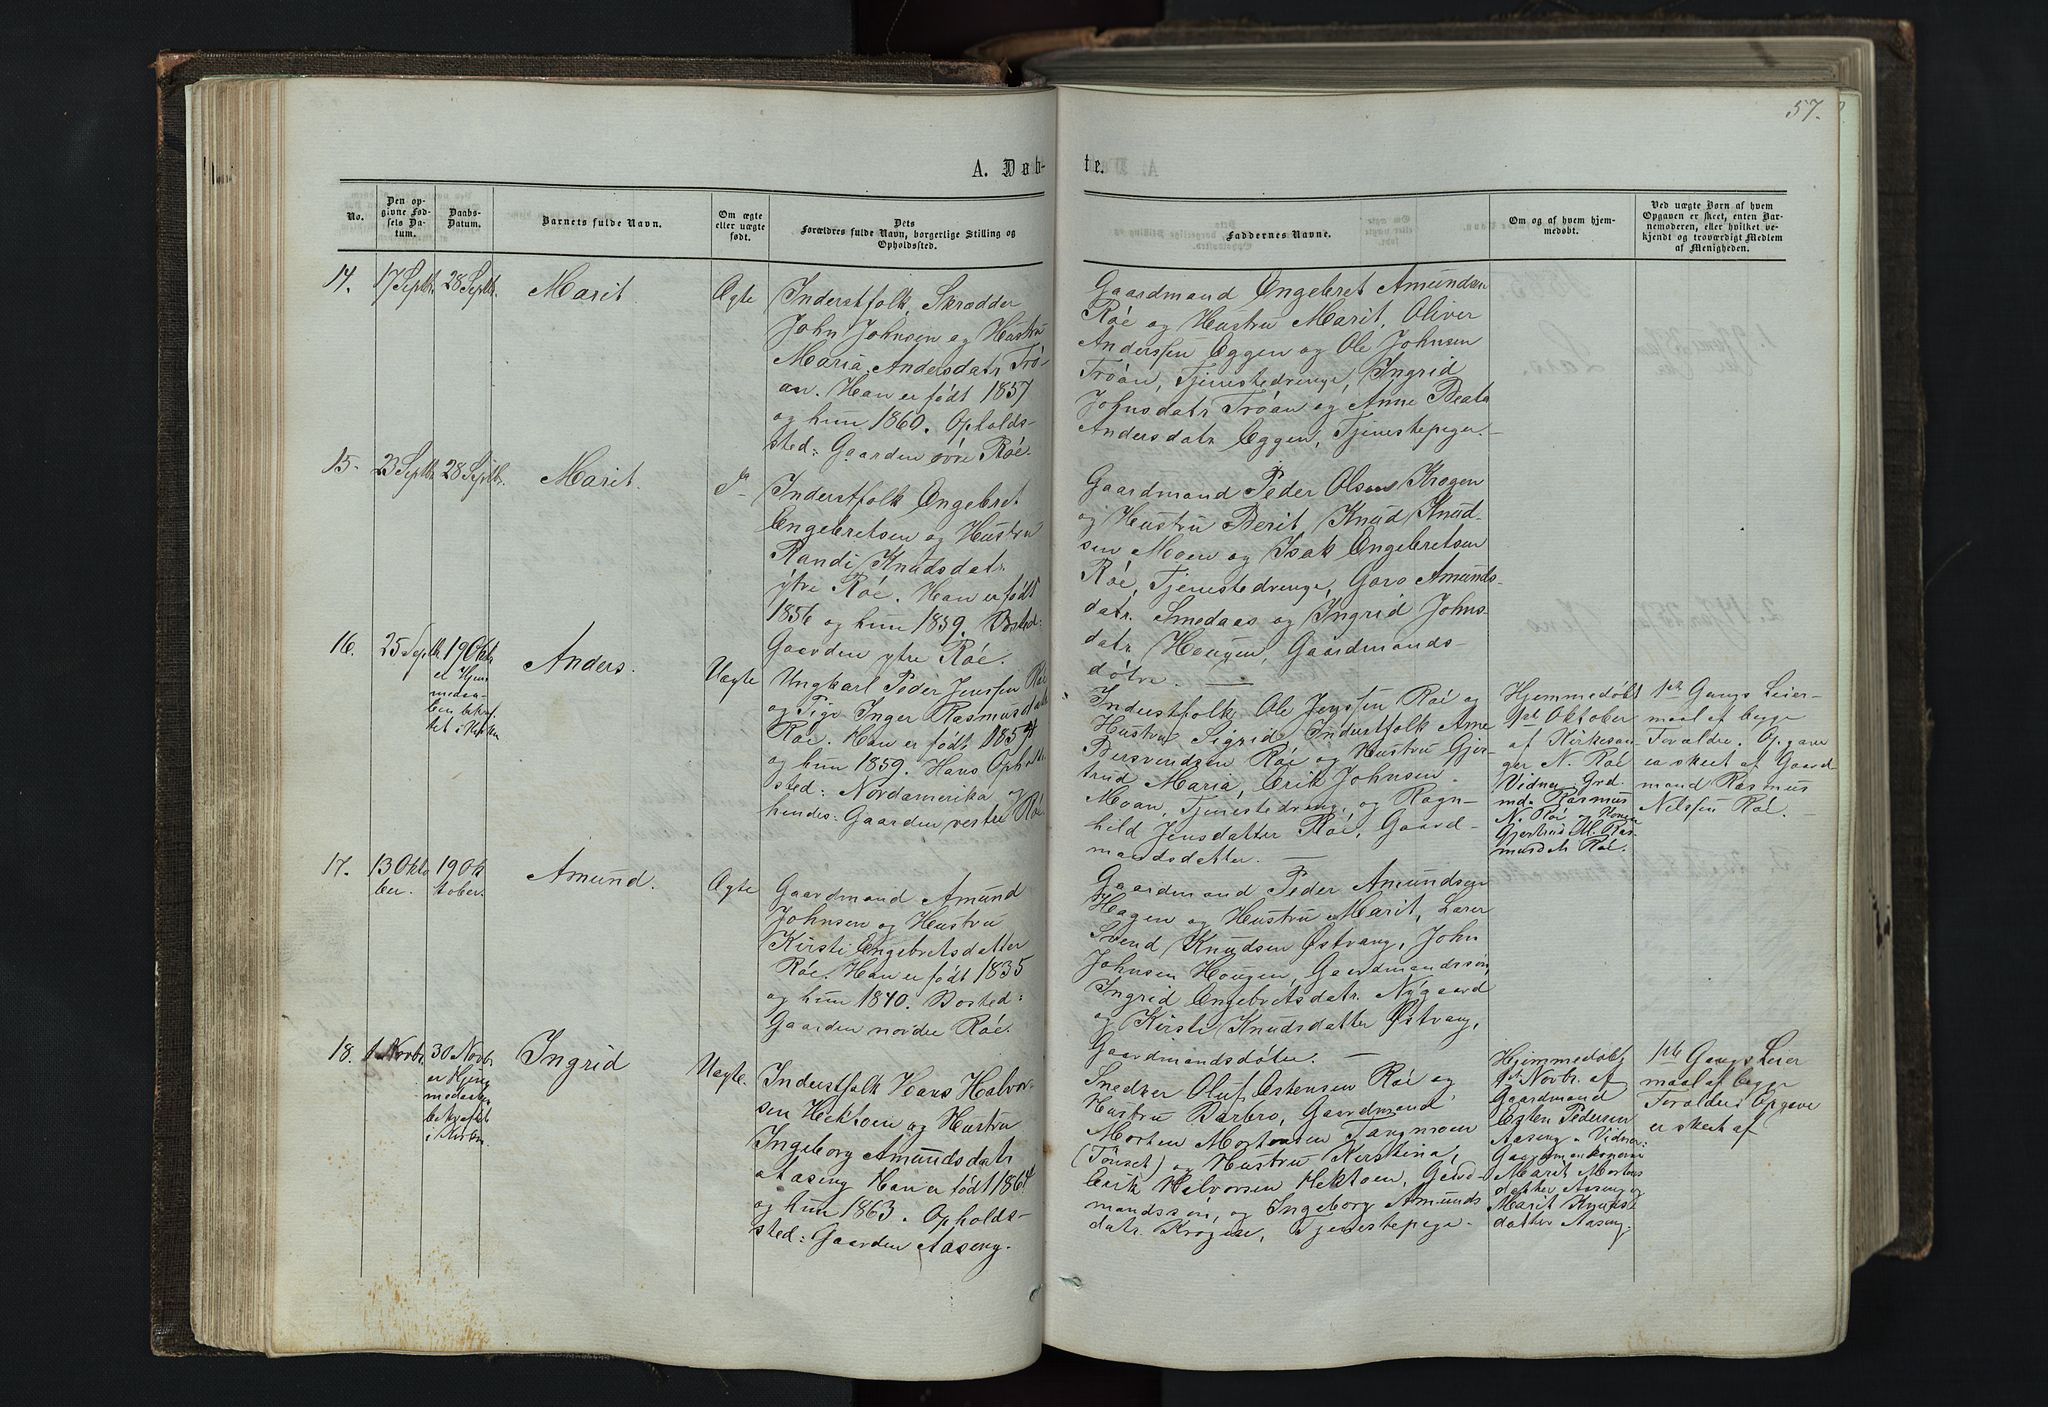 57.
A. Døb-
te.
No.
Den op-
givne Fød-
sels Da-
tum.
Daabs-
Datum.
Barnets fulde Navn.
Om ægte
eller uægte
født.
Dets
Forældres fulde Navn, borgerlige Stilling og
Opholdssted.
Faddernes Navne.
Om og af hvem hjem-
medøbt.
Ved uægte Børn af hvem
Opgaven er skeet, enten Bar-
nemoderen, eller hvilket ve-
kjendt og troværdigt Medlem
af Menigheden.
14.
17 Septbr.
28 Septbr.
Marit
Ægte
Inderstfolk, Skrædder
John Johnsen og Hustru
Maria Andersdatr Trö-
an. Han er födt 1857
og hun 1860. Opholds-
sted: Gaarden övre Röe.
Gaardmand Engebret Amundsen
Röe og Hustru Marit, Oliver
Anderssen Eggen og Ole Johnsen
Tröan, Tjenestedrenge, Ingrid
Johnsdatr Tröan og Anne Beata
Andersdatr Eggen, Tjenestepiger.-
15.
23 Septbr.
28 Septbr.
Marit.
Inderstfolk Engebret
Engebretsen og Hustru
Randi Knudsdatr.
ytre Röe. Han er födt
1856 og hun 1859. Bosted:
Gaarden ytre Röe.
Gaardmand Peder Olsen Krogen
og Hustru Berit, Knud Knud-
sen Moen og Isak Engebretsen
Röe, Tjenestedrenge, Goro Amunds-
datr. Smedaas og Ingrid Johns-
datr. Hougen, Gaardmands-
døtre. —
16.
25 Septbr
19 Oktbr
er Hjem
medaa-
ben bekræf-
tet i Kirken
Anders.
Uægte
Ungkarl Peder Jenssen Röe
og Pige Inger Rasmusdatr
Röe. Han er födt 1854
og hun 1859. Hans Opholds-
sted: Nordamerika,
hendes: Gaarden vestre Röe
Inderstfolk Ole Jenssen Röe og
Hustru Sigrid, Inderstfolk Arne
Bersvendsen Röe og Hustru Gjer-
trud Maria, Erik Johnsen
Moan, Tjenestedreng, og Ragn-
hild Jensdatter Röe, Gaard-
mandsdatter. —
Hjemmedøbt
1ste Oktober
af Kirkesan-
ger N. Röe
Vidner: Grd.
md. Rasmus
N. Röe og Konen
Gjertrud M. Ras
musdatr Röe.
1ste Gangs Leier-
maal af begge
Forældre. Opgaven
er skeet af Gaard
mand Rasmus
Nilssen Röe.
17.
13 Okto
ber.
19 Ok
tober.
Amund.
Ægte
Gaardmand Amund
Johnsen og Hustru
Kirsti Engebretsdatter
Röe. Han er födt 1835
og hun 1840. Bosted:
Gaarden nordre Röe.
Gaardmand Peder Amundsen
Hagen og Hustru Marit, Lærer
Svend Knudsen Østvang, John
Johnsen Hougen, Gaardmandssön,
Ingrid Engebretsdatr. Nygaard
og Kirsti Knudsdatter Østvang,
Gaardmandsdøtre. —
18.
1 Novbr.
30 Novbr.
er Hjem
medaaben
bekræftet
i Kirken.
Ingrid
Uægte.
Inderstfolk Hans Halvor-
sen Hektoen og Hustru
Ingeborg Amundsdatr
Aaseng Han er födt 1864
og hun 1863. Opholds-
sted: Gaarden Aaseng.
Snedker Oluf Estensen Röe og
Hustru Barbro, Gaardmand
Morten Mortensen Tangmoen
(Tönset) og Hustru Kerstina,
Erik Halvorsen Hektoen, Gaard-
mandssön, og Ingeborg Amunds
datr. Krogen, Tjenestepige.-
Hjemmedöbt
1ste Novbr. af
Gaardmand
Esten Pedersen
Aaseng. Vidner:
Gaardmandskonerne
Marit Mortens
datter Aaseng og
Marit Knuds
datter Aaseng.
1ste Gangs Leier
maal af begge
Forældre. Opgave
er skeet af